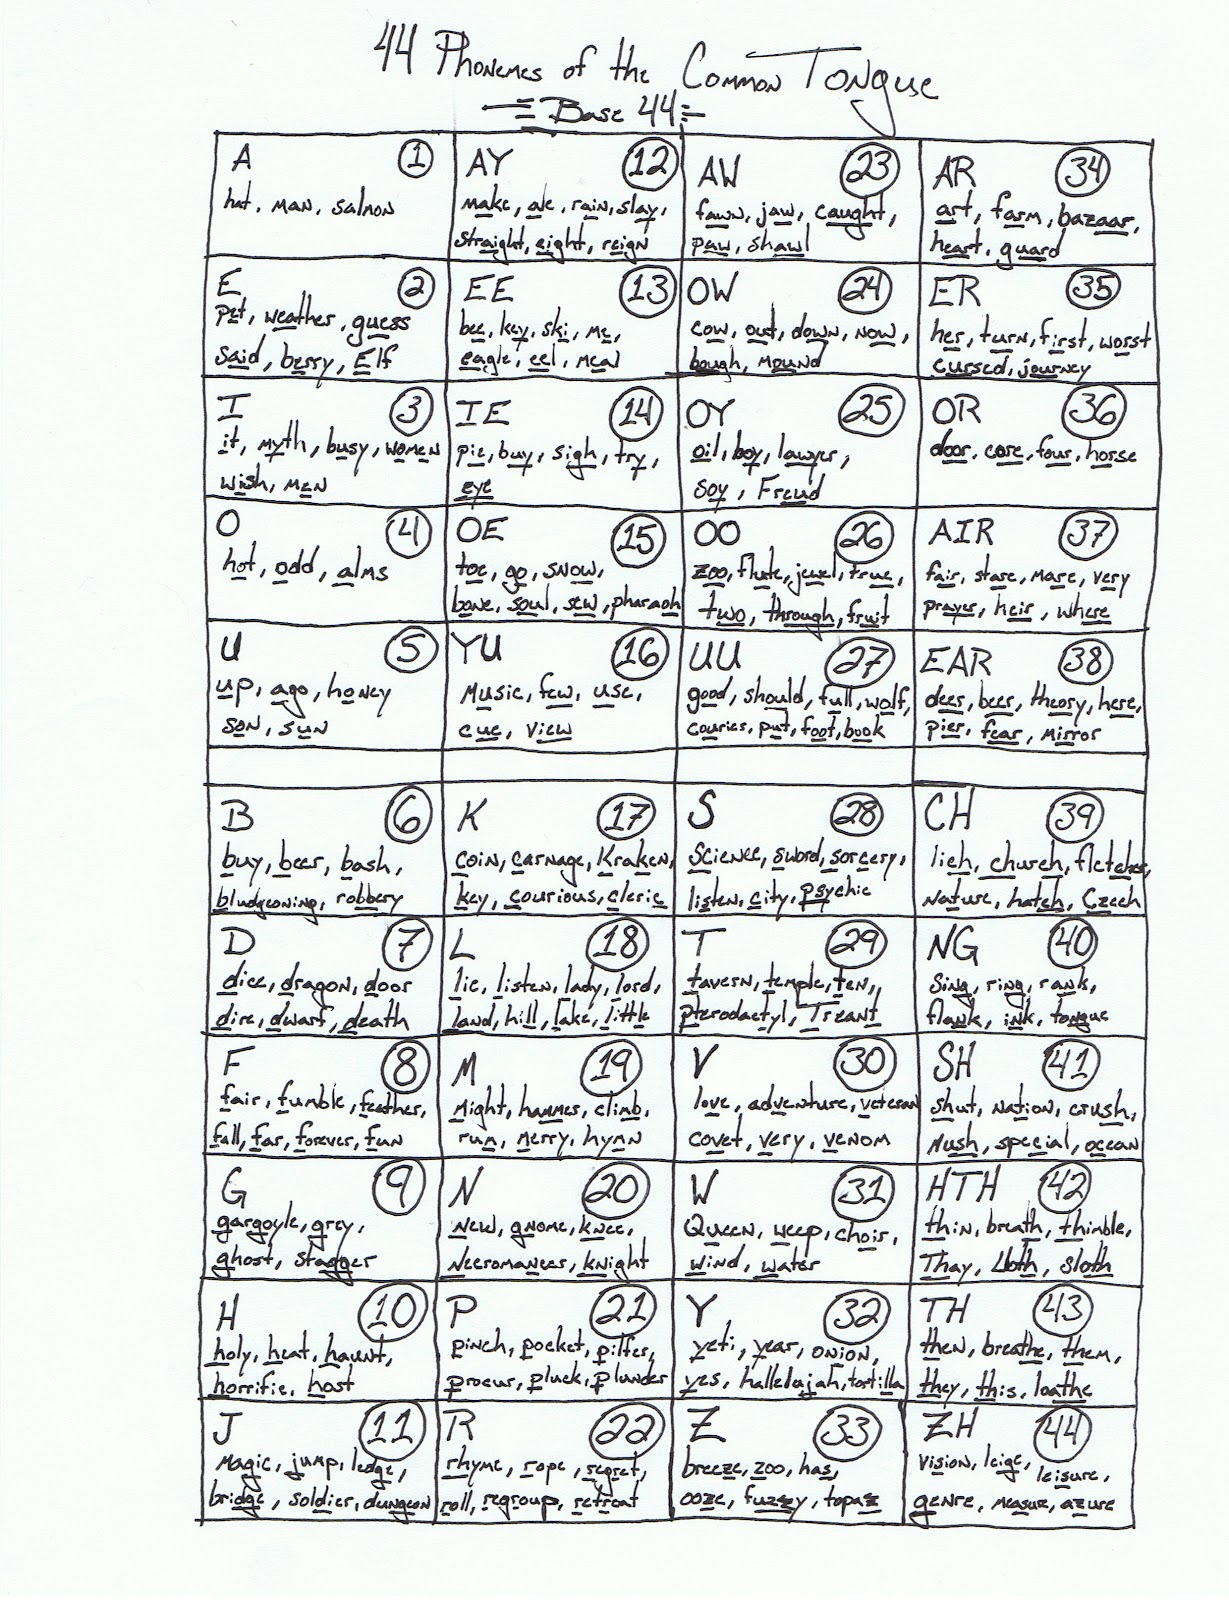 44 Phonemes of the Common Tongue
Base 44
A 1
hat, man, salmon
AY 12
make, ale, rain, slay,
straight, eight, reign
AW 23
fawn, jaw, caught,
paw, shawl
AR 34
art, farm, bazaar,
heart, guard
E 2
pet, weather, guess
said, berry, Elf
EE 13
bee, key, ski, me,
eagle, eel, meal
OW 24
cow, out, down, now,
bough, mound
ER 35
her, turn, first, worst
cursed, journey
I 3
it, myth, busy, women
wish, men
IE 14
pie, buy, sigh, try,
eye
OY 25
oil, boy, lawyer,
soy, Freud
OR 36
door, core, four, horse
O 4
hot, odd, alms
OE 15
toe, go, snow,
bone, soul, sew, pharaoh
OO 26
zoo, flute, jewel, true,
two, through, fruit
AIR 37
fair, stare, mare, very
prayer, heir, where
U 5
up, ago, honey
son, sun
YU 16
Music, few, use,
cue, view
UU 27
good, should, full, wolf,
couries, put, foot, book
EAR 38
deer, beer, theory, here,
pier, fear, mirror
B 6
buy, beer, bash,
bludgeoning, robbery
K 17
coin, carnage, Kraken,
key, courious, cleric
S 28
Science, sword, sorcery,
listen, city, psychic
CH 39
lich, church, fletcher,
nature, hatch, Czech
D 7
dice, dragon, door
dire, dwarf, death
L 18
lie, listen, lady, lord,
land, hill, lake, little
T 29
tavern, temple, ten,
pterodactyl, Treant
NG 40
Sing, ring, rank,
flank, ink, tongue
F 8
fair, fumble, feather,
fall, far, forever, fun
M 19
Might, hammer, climb,
rum, merry, hymn
V 30
love, adventure, veteran
covet, very, venom
SH 41
Shut, nation, crush,
Mush, special, ocean
G 9
gargoyle, grey,
ghost, stagger
N 20
New, gnome, knee,
necromancer, knight
W 31
Queen, weep, choir,
wind, water
HTH 42
thin, breath, thimble,
Thay, Lloth, sloth
H 10
holy, heat, haunt,
horrific, host
P 21
pinch, pocket, pilfer,
procur, pluck, plunder
Y 32
yeti, year, onion,
yes, hallelujah, tortilla
TH 43
then, breathe, them,
they, this, loathe
J 11
Magic, jump, ledge,
bridge, soldier, dungeon
R 22
rhyme, rope, regret,
roll, regroup, retreat
Z 33
breeze, zoo, has,
ooze, fuzzy, topaz
ZH 44
vision, leige, leisure,
genre, measur, azure